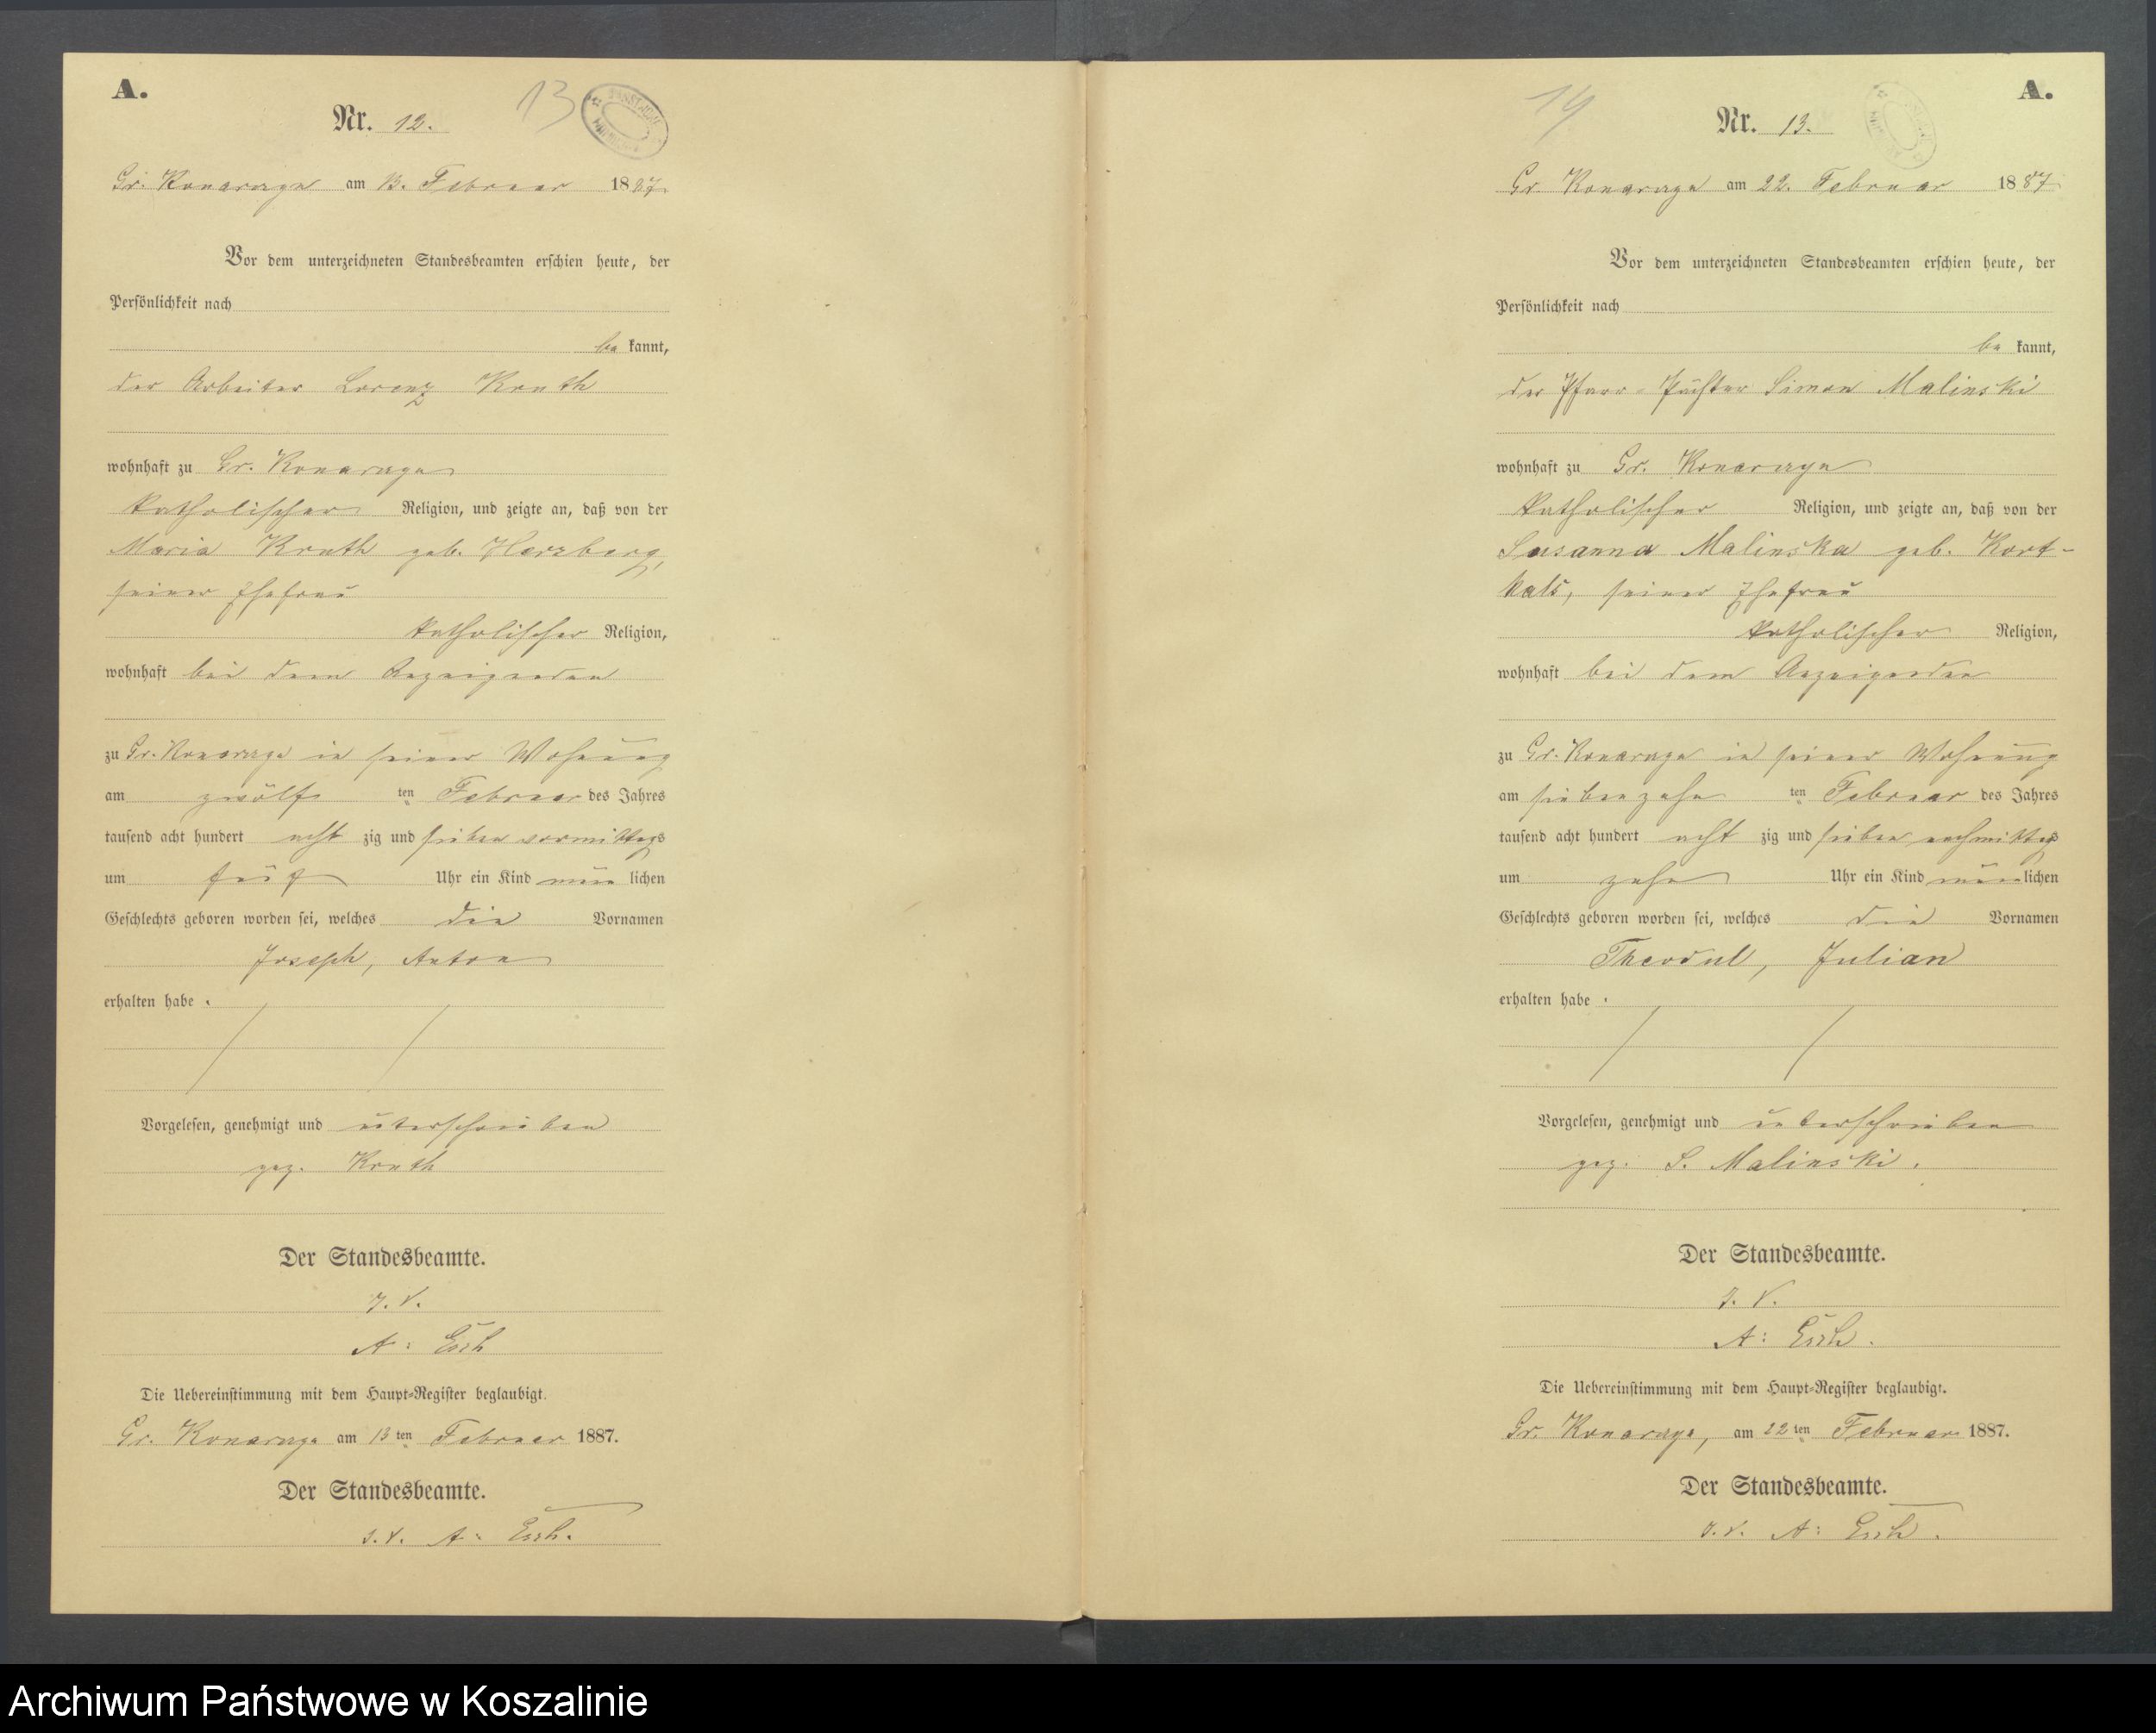 A.
13
Nr. 12.
Gr. Konarczyn am 13. Februar 1887.
Vor dem unterzeichneten Standesbeamten erschien heute, der
Persönlichkeit nach
be kannt,
der Arbeiter Lorenz Knuth
wohnhaft zu Gr. Konarczyn
katholischer Religion, und zeigte an, daß von der
Maria Knuth geb. Herzberg,
seiner Ehefrau
katholischer Religion,
wohnhaft bei dem Anzeigenden
zu Gr. Konarczyn in seiner Wohnung
am zwölf ten Februar des Jahres
tausend acht hundert acht zig und sieben vormittags
um fünf Uhr ein Kind männ lichen
Geschlechts geboren worden sei, welches die Vornamen
Joseph, Anton
erhalten habe.
Vorgelesen, genehmigt und unterschrieben
gez. Knuth
Der Standesbeamte.
J. V.
A:
Die Uebereinstimmung mit dem Haupt-Register beglaubigt.
Gr. Konarczyn am 13 ten Februar 1887.
Der Standesbeamte.
J. V. A:
A.
14
Nr. 13.
Gr Konarczyn am 22. Februar 1887
Vor dem unterzeichneten Standesbeamten erschien heute, der
Persönlichkeit nach
be kannt,
der Pfarr-Pächter Simon Malinski
wohnhaft zu Gr. Konarczyn
katholischer Religion, und zeigte an, daß von der
Susanna Malinska geb. Kort-
kals, seiner Ehefrau
katholischer Religion,
wohnhaft bei dem Anzeigenden
zu Gr. Konarczyn in seiner Wohnung
am siebenzehn ten Februar des Jahres
tausend acht hundert acht zig und sieben nachmittags
um zehn Uhr ein Kind männlichen
Geschlechts geboren worden sei, welches die Vornamen
Theodul, Julian
erhalten habe.
Vorgelesen, genehmigt und unterschrieben
gez. S. Malinski.
Der Standesbeamte.
J. V.
A:
Die Uebereinstimmung mit dem Haupt-Register beglaubigt.
Gr. Konarczyn, am 22 ten Februar 1887.
Der Standesbeamte.
J. V. A:
Archiwum Państwowe w Koszalinie